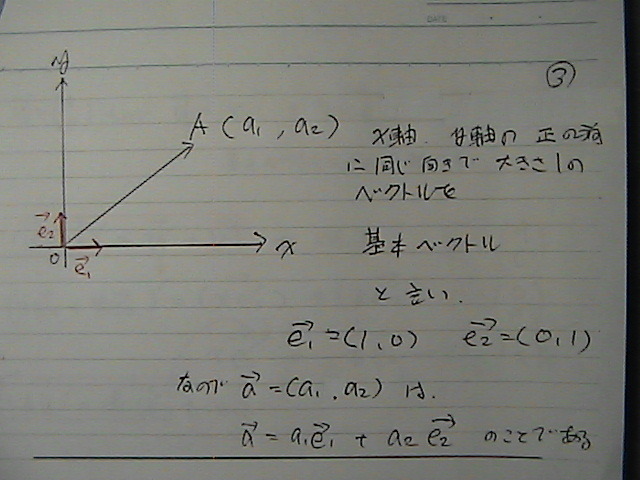 DATE
③
y
A (a₁, a₂)
x軸、y軸の 正の部分
に同じ向きで 大きさ1の
ベクトルを
e₂→
O
e₁→
x
基本ベクトル
と言い、
e₁→=(1,0) e₂→=(0,1)
なので a→=(a₁,a₂) は、
a→ = a₁e₁→ + a₂e₂→ のことである